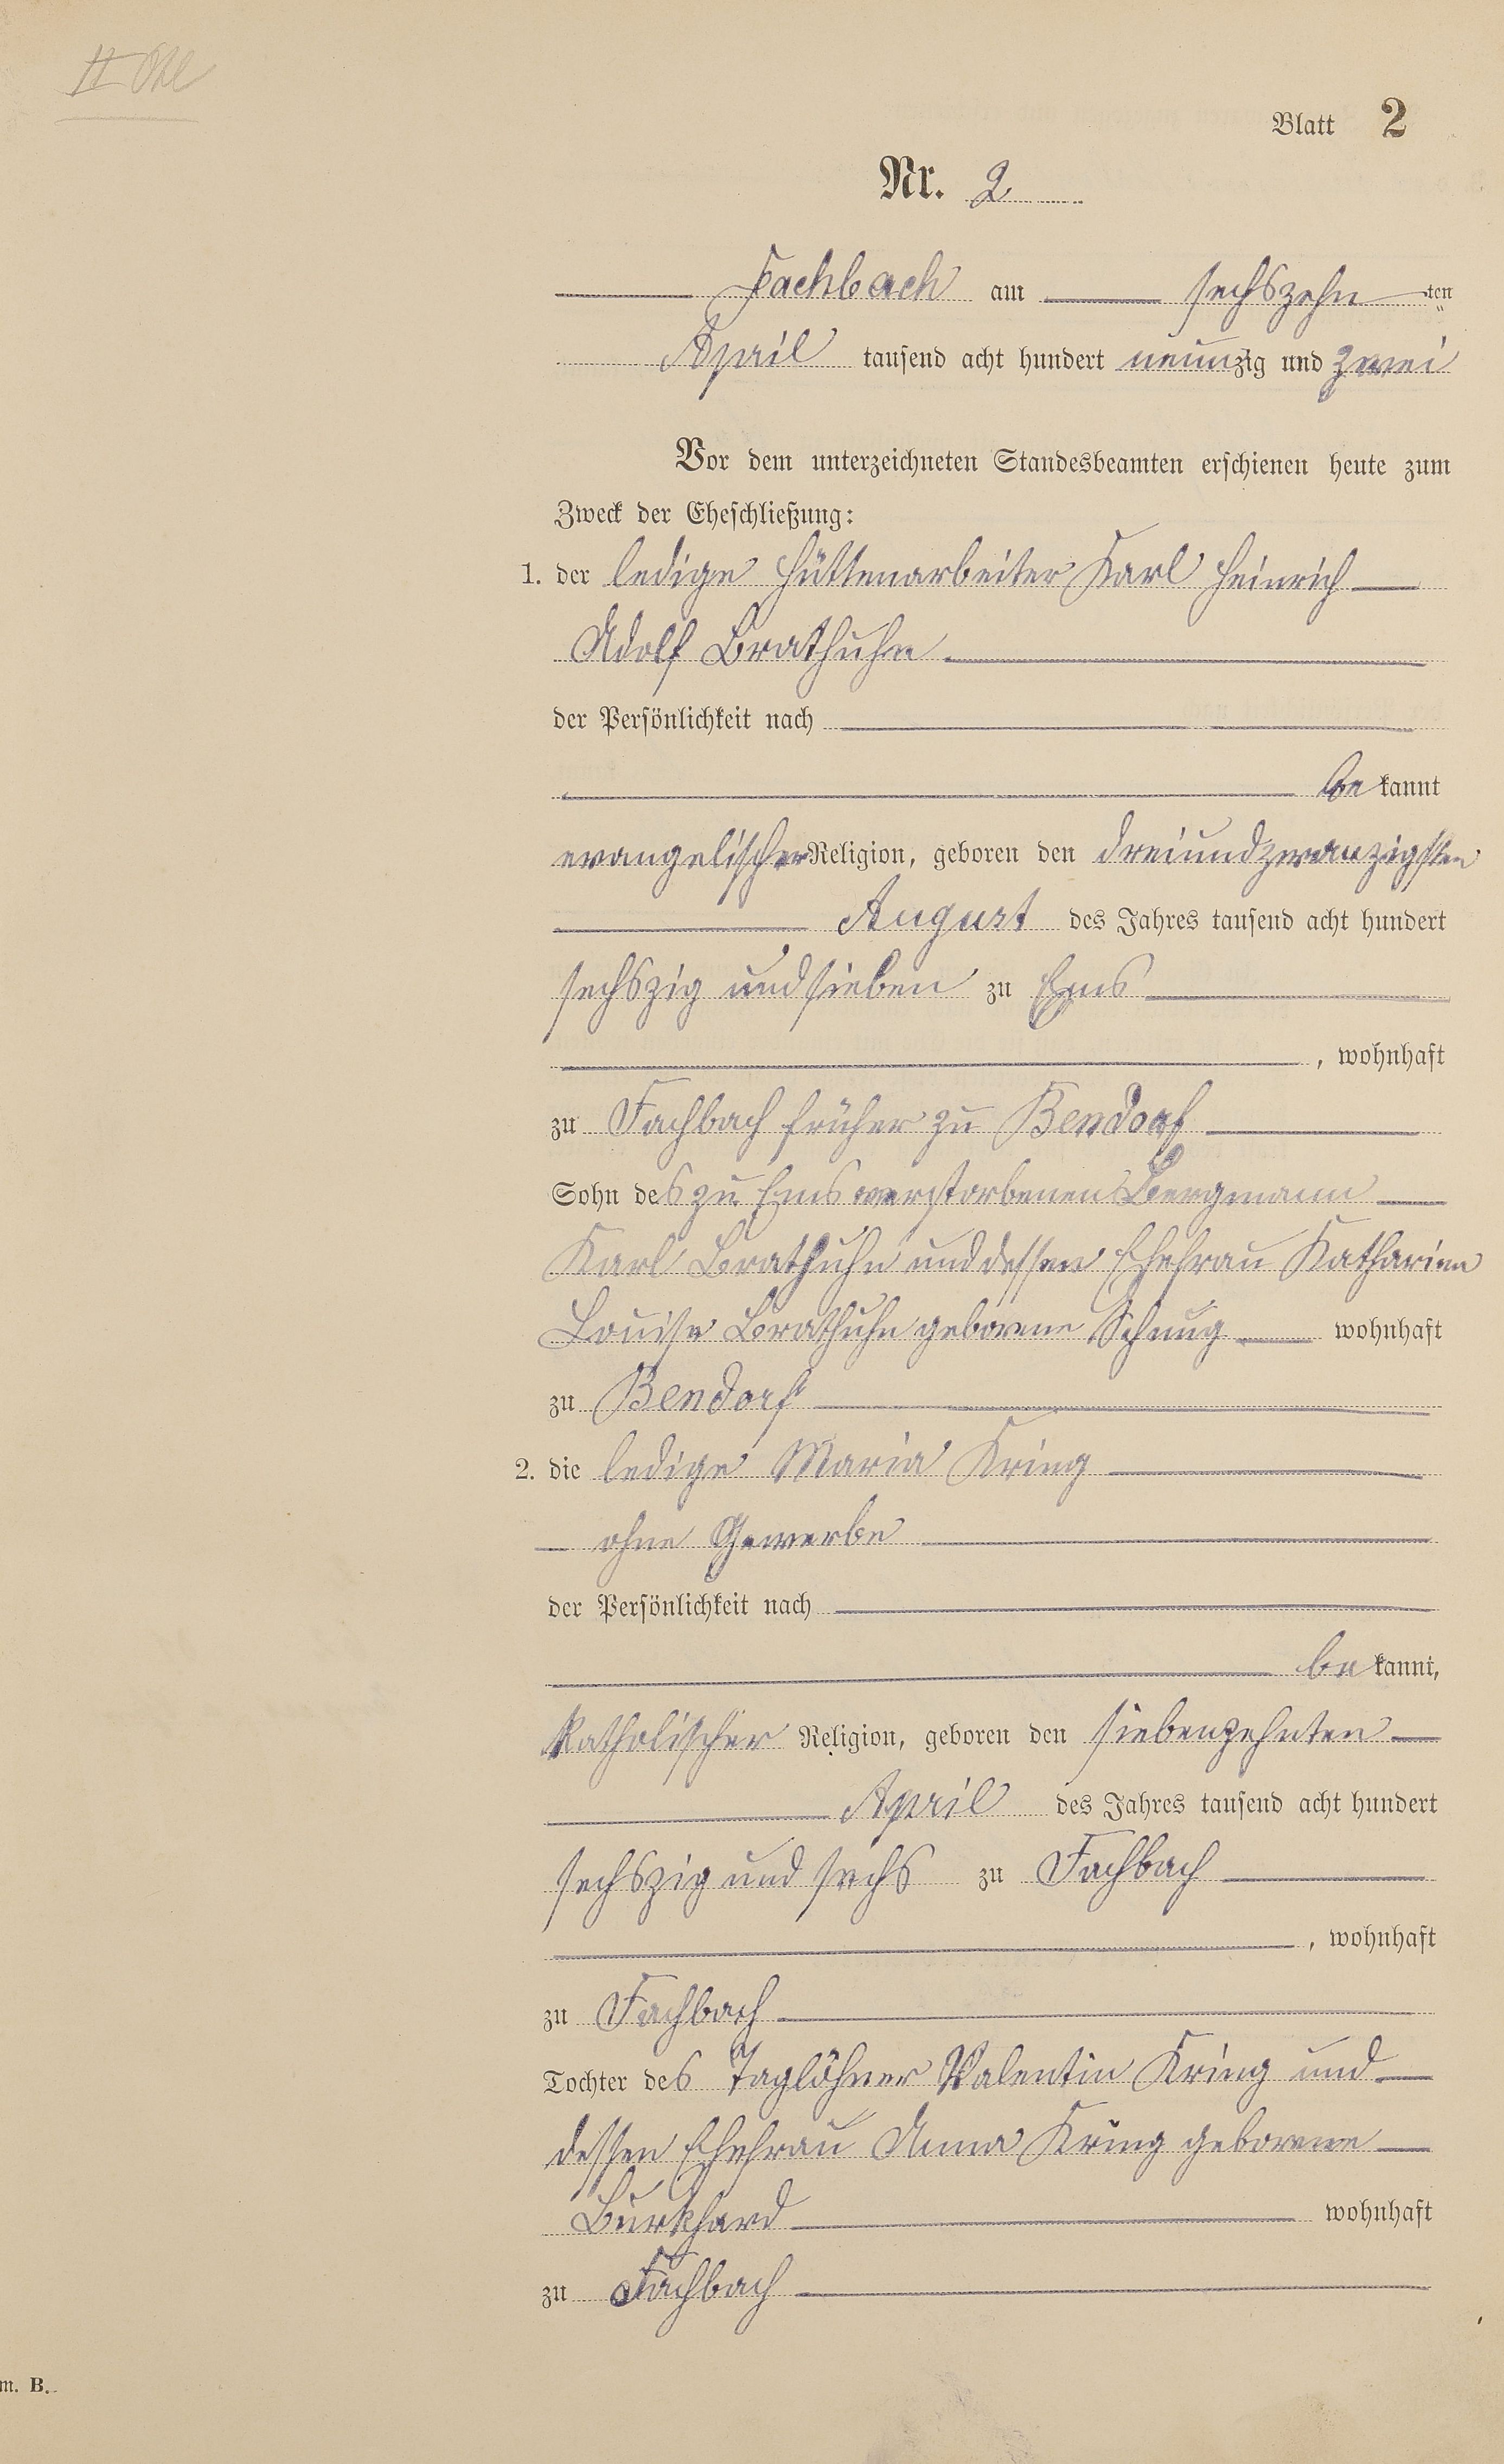 Blatt 2
Nr. 2
Fachbach am sechszehn ten
April tausend acht hundert neunzig und zwei
Vor dem unterzeichneten Standesbeamten erschienen heute zum
Zweck der Eheschließung:
1. der ledige Hüttenarbeiter Karl Heinrich
Adolf Brathuhn
der Persönlichkeit nach
be kannt
evangelischer Religion, geboren den dreiundzwanzigsten
August des Jahres tausend acht hundert
sechszig und sieben zu Ems
, wohnhaft
zu Fachbach früher zu Bendorf
Sohn des zu Ems verstorbenen Bergmann
Karl Brathuhn und dessen Ehefrau Katharina
Louise Brathuhn geborene Schnug wohnhaft
zu Bendorf
2. die ledige Maria Kring
ohne Gewerbe
der Persönlichkeit nach
be kannt,
katholischer Religion, geboren den siebenzehnten
April des Jahres tausend acht hundert
sechszig und sechs zu Fachbach
, wohnhaft
zu Fachbach
Tochter des Taglöhner Valentin Kring und
dessen Ehefrau Anna Kring geborene
Burkhard wohnhaft
zu Fachbach
m. B.